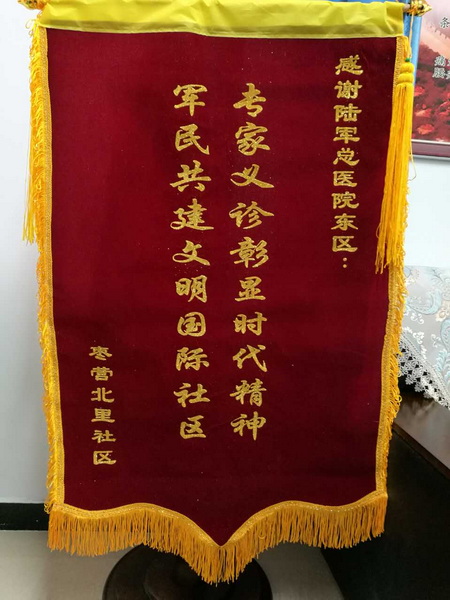 感谢陆军总医院东区：
专家义诊彰显时代精神
军民共建文明国际社区
枣营北里社区